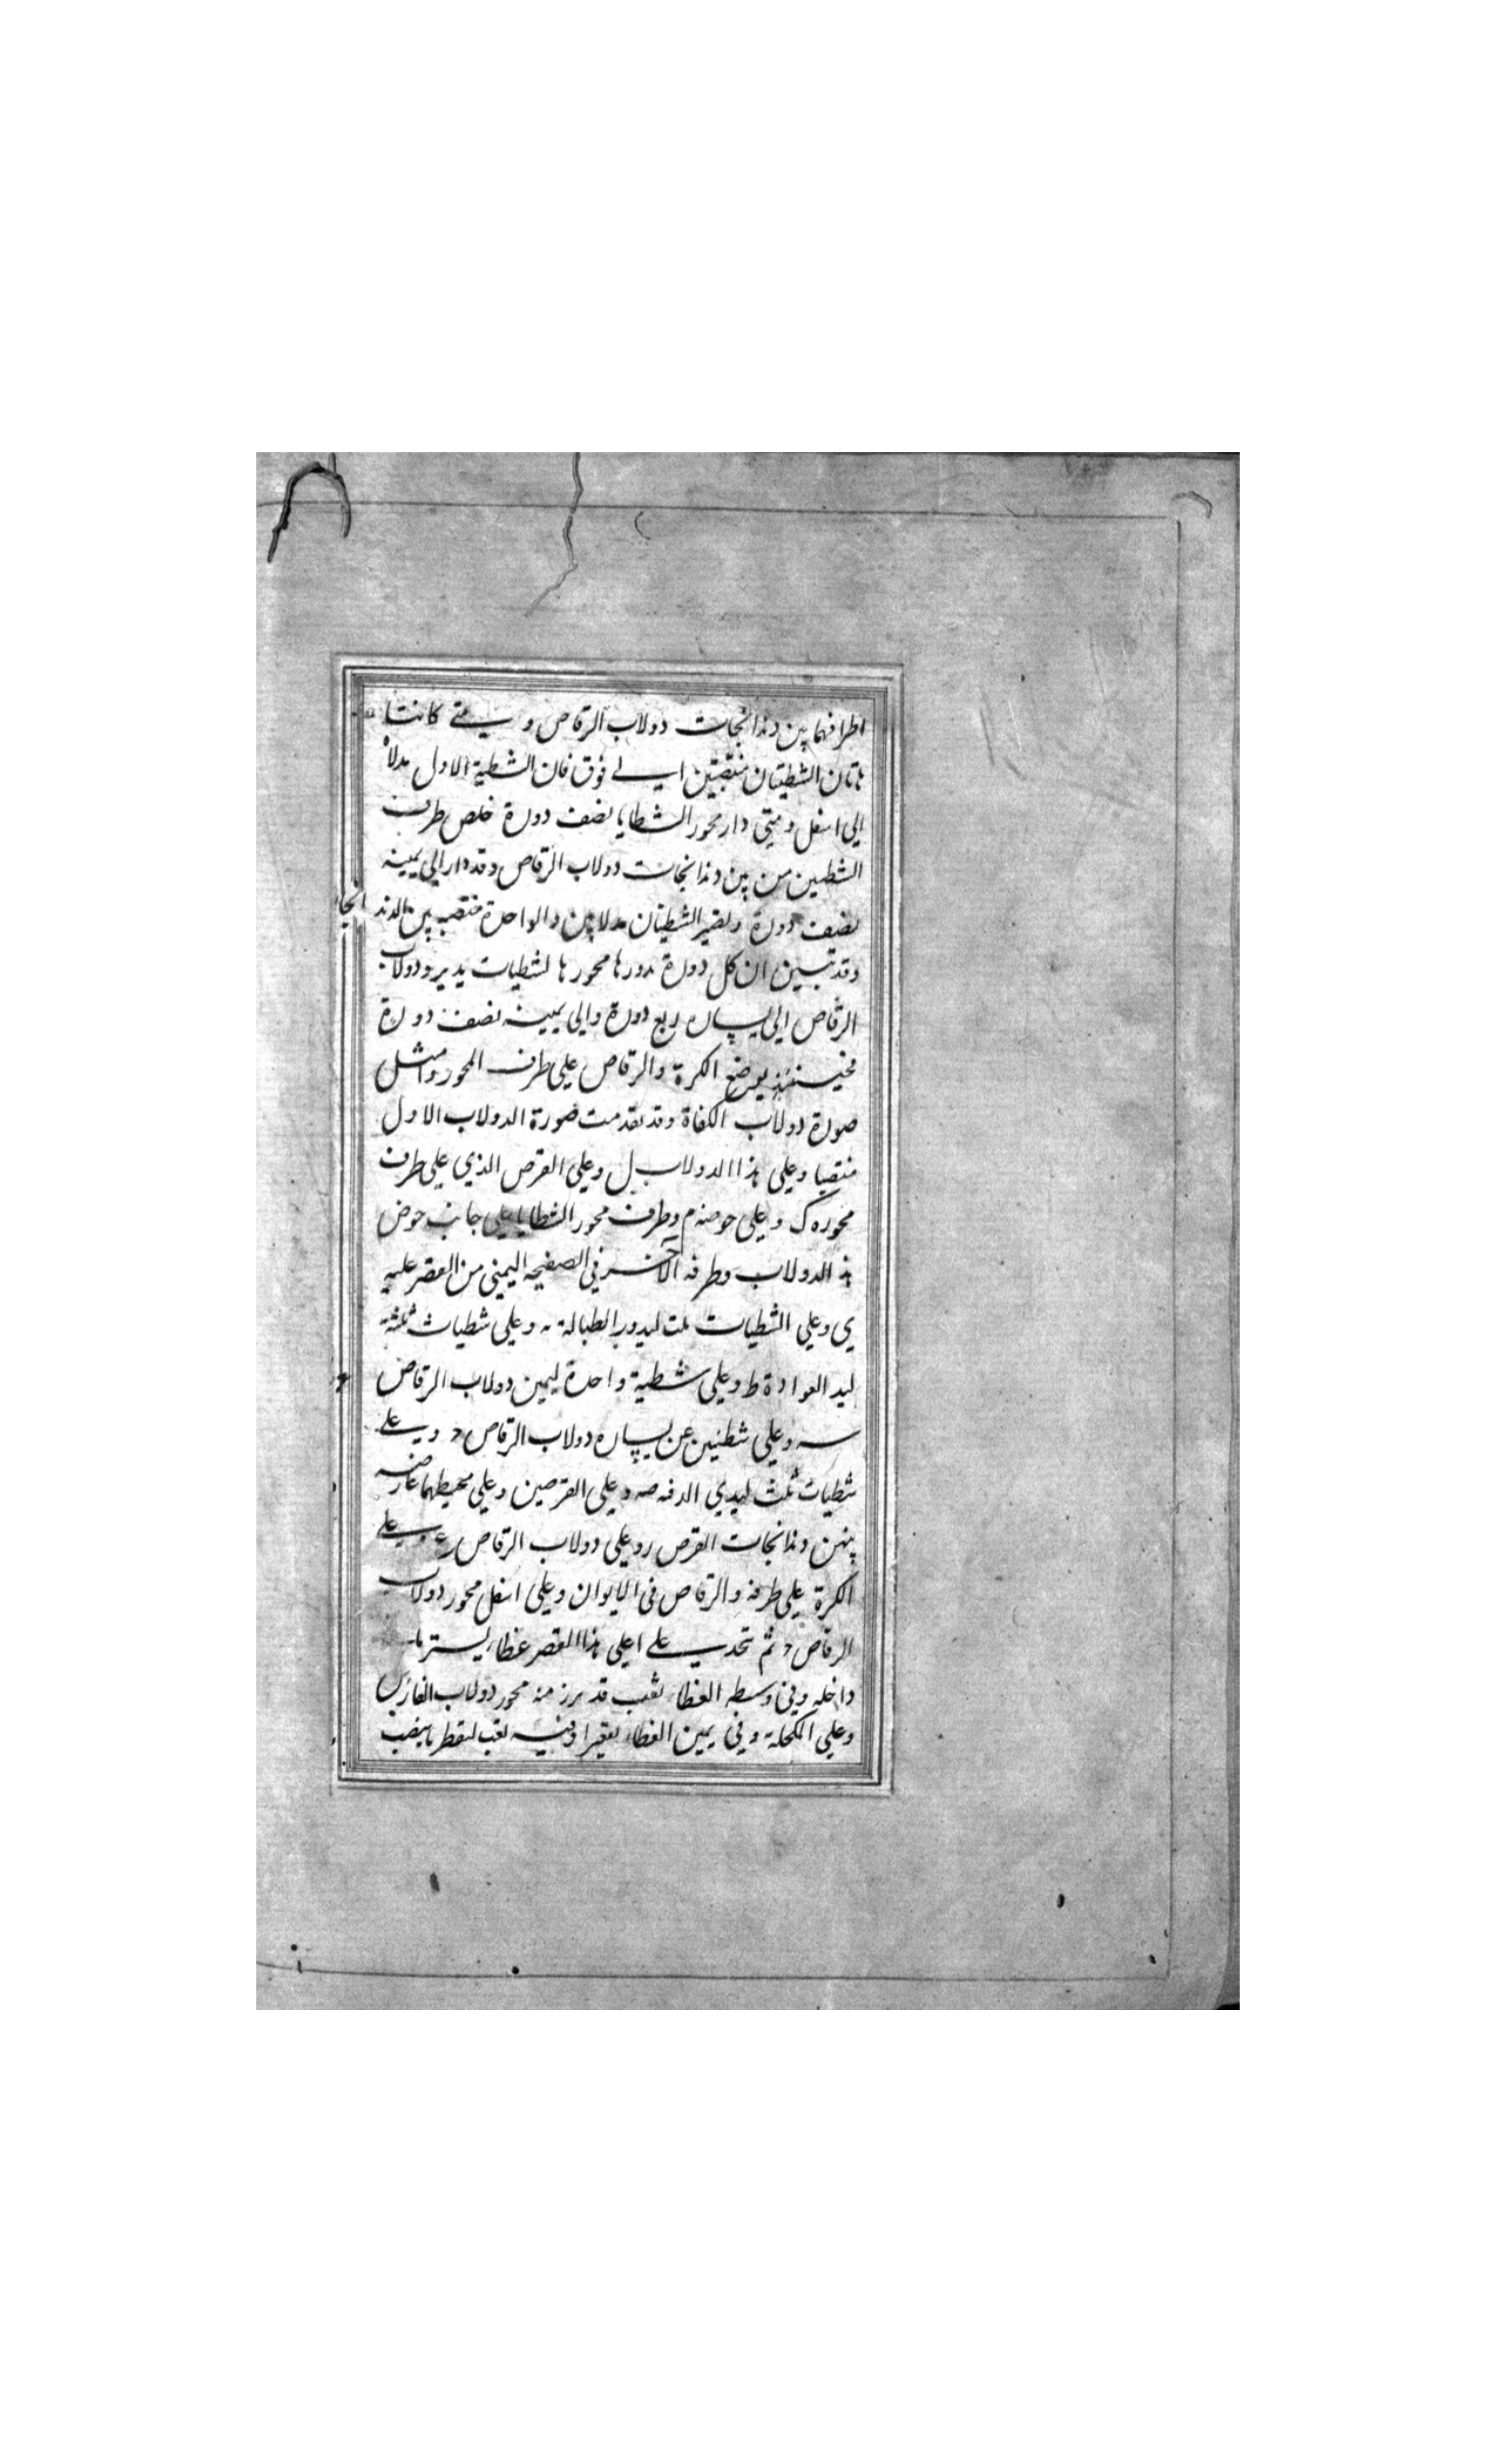 اطرافهما بين دندانجات دولاب الرقاص ومتي كانتا
هاتان الشطيتان منتصبتين الي فوق فان الشطية الاول مدلاه
الي اسفل ومتي دار محور الشطايا نصف دورة خلص طرف
الشطيتين من بين دندانجات دولاب الرقاص وقد دار الي يمينه
نصف دورة ولصير الشطيتان مدلايين والواحدة منتصبه بين الدندانجا
وقد تبين ان كل دورة يدورها محورها لشطيات يدير ودولاب
الرقاص الي يساره ربع دورة والي يمينه نصف دورة
فحينئذ يوضع الكرة والرقاص علي طرف المحور وامثل
صورة دولاب الكفاة وقد تقدمت صورة الدولاب الاول
منتصبا وعلي هذا الدولاب ل وعلي القرص الذي علي طرف
محوره ك وعلي حوضه م وطرف محور الشطايا علي جانب حوض
هذا الدولاب وطرفه الآخر في الصفيحه اليمني من القصر عليه
ي وعلي الشطيات ثلث ليدور الطبالة ـه وعلي شطيات ثلثة
ليد العوادة ط وعلي شطية واحدة ليمين دولاب الرقاص
سه وعلي شطيتين عن يساره دولاب الرقاص د وعلي
شطيات ثلث ليدي الدفه صه وعلي القرصين وعلي محيطهما عارضه
بينهن دندانجات القرص ر وعلي دولاب الرقاص ع وعلي
الكرة علي طرفه والرقاص في الايوان وعلي اسفل محور دولاب
الرقاص د ثم تتخذ علي اعلي هذا القصر غطاء يستر ما
داخله وفي وسطه الغطاء ثقب قد برز منه محور دولاب الفارس
وعلي المكحلة وفي يمين الغطاء تقعيرا وفيه ثقب لتقطر ما ينصب